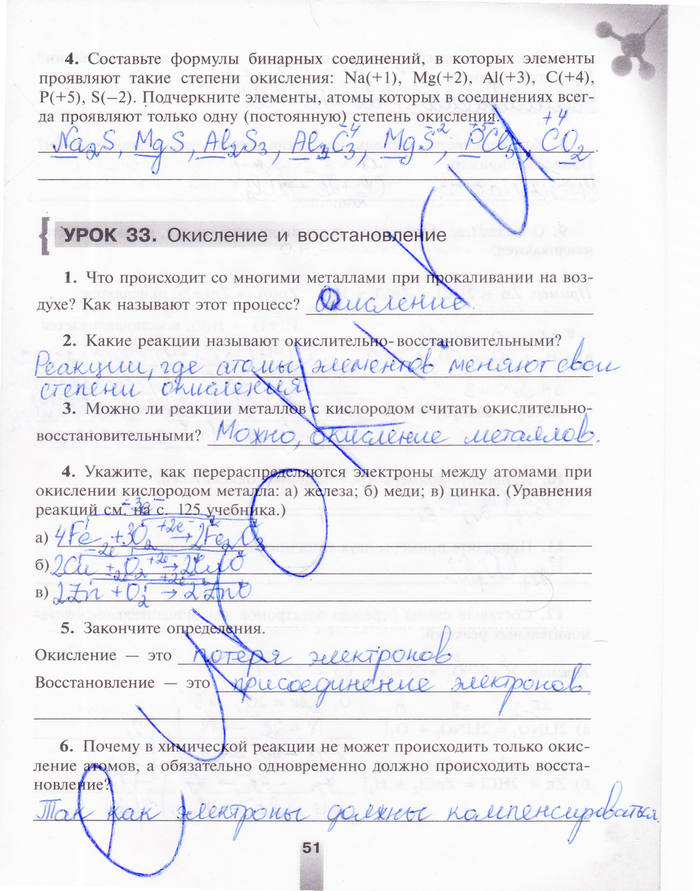 4. Составьте формулы бинарных соединений, в которых элементы
проявляют такие степени окисления: Na(+1), Mg(+2), Al(+3), C(+4),
P(+5), S(−2). Подчеркните элементы, атомы которых в соединениях всег-
да проявляют только одну (постоянную) степень окисления.
Na₂S, MgS, Al₂S₃, Al₂C₃⁻⁴, MgS⁻², PCl₅, CO₂⁺⁴
УРОК 33. Окисление и восстановление
1. Что происходит со многими металлами при прокаливании на воз-
духе? Как называют этот процесс? Окисление.
2. Какие реакции называют окислительно-восстановительными?
Реакции, где атомы элементов меняют свои
степени окисления
3. Можно ли реакции металлов с кислородом считать окислительно-
восстановительными? Можно, окисление металлов.
4. Укажите, как перераспределяются электроны между атомами при
окислении кислородом металла: а) железа; б) меди; в) цинка. (Уравнения
реакций см. на с. 125 учебника.)
а) 4Fe + 3O₂ → 2Fe₂O₃
б) 2Cu + O₂ → 2CuO
в) 2Zn + O₂ → 2ZnO
5. Закончите определения.
Окисление — это потеря электронов
Восстановление — это присоединение электронов
6. Почему в химической реакции не может происходить только окис-
ление атомов, а обязательно одновременно должно происходить восста-
новление?
Так как электроны должны компенсироваться.
51